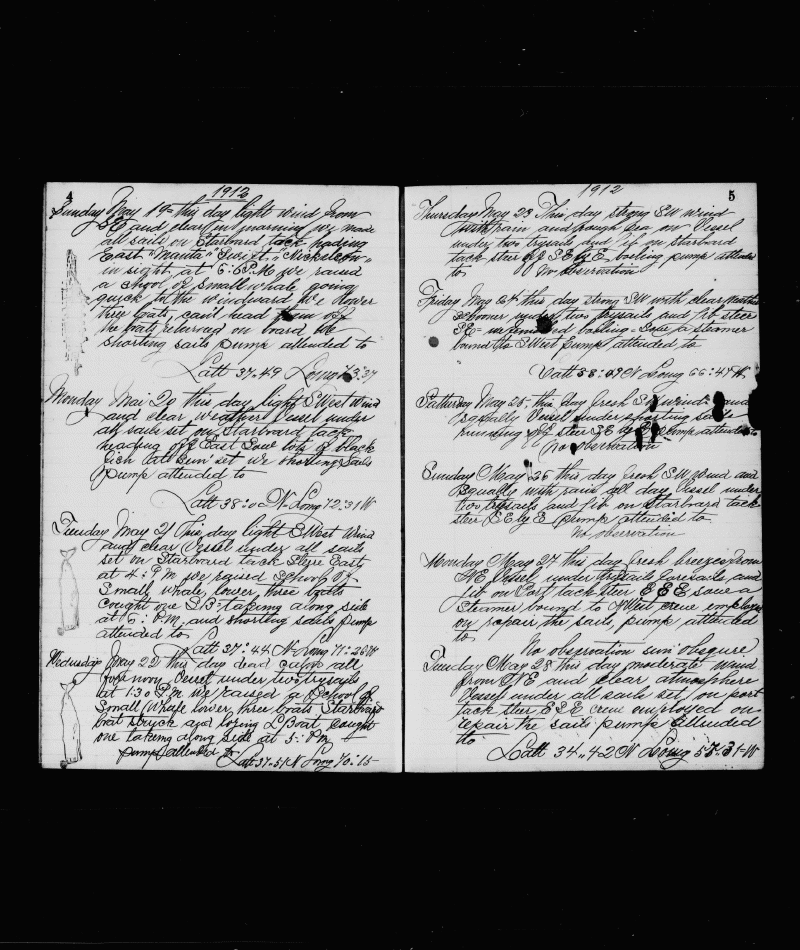 4
1912
Sunday May 19 this day light wind from
SE and clear in morning we made
all sails on Starboard tack heading
East "Manta" "Swift" "Nickelson"
in sight. at 6: P.M we raised
a shool of small whale going
quick to the windward we lower
three boats, can't head from off
the boats returned on board We
shorting sails pump attended to
Latt 37.49 Long 73:37
Monday Mai 20 this day light S West Wind
and clear weathers Vessel under
all sails set on Starboard tack
heading East Saw lots of black
fish late sun set we shorting Sails
pump attended to
Latt 38:0 N Long 72:31 W
Tuesday May 21 This day light S West Wind
and clear Vessel under all sails
set on Starboard tack Steer East
at 4: P.M we raised School of
Small whale, lower three boats
cought one taking along side
at 6: P.M. and shorting sails pump
attended to
Latt 37:44 N Long 71:26 W
Wedusday May 22 This day dead calm all
fore noon Vessel under two trysails
at 1:30 P.M we raised a School of
Small Whale lower three boats Starboard
boat struck and losing L Boat cought
one taking along side at 5: P.M.
pump attended to
Latt 37.51 N Long 70:15
5
1912
Thursday May 23 This day strong SW wind
with rain and rough sea on Vessel
under two trysails and jib on Starbord
tack steer SE by E boiling pump attended
to No obervation
Friday May 24 this day strong SW with clear weather
schooner under two trysails and jib steer
SE boiling. Saw a steamer
bound to S West pump attended to
Latt 38:07 N Long 66:47 W
Satturday May 25, this day fresh SW wind and
squally Vessel under shorting sails
running off steer SE by E pump attended to
No obervation
Sunday May 26 this day fresh SW wind and
squally with rain all day Vessel under
two trysails and jib on Starbord tack
steer SE by E pump attended to
No obervation
Monday May 27 this day fresh breezes from
NE Vessel under trysails foresails and
jib on Port tack steer ESE saw a
Steamer bound to West crew employed
on repair the sails, pump attended
to
No obsirvation sun obsqure
Tuesday May 28 this day moderate wind
from NE and clear atmosphire
Vessel under all sails set, on port
tack steer ESE crew employed on
repair the sails pump Attended
tto
Latt 34..42 N Long 57:31 W